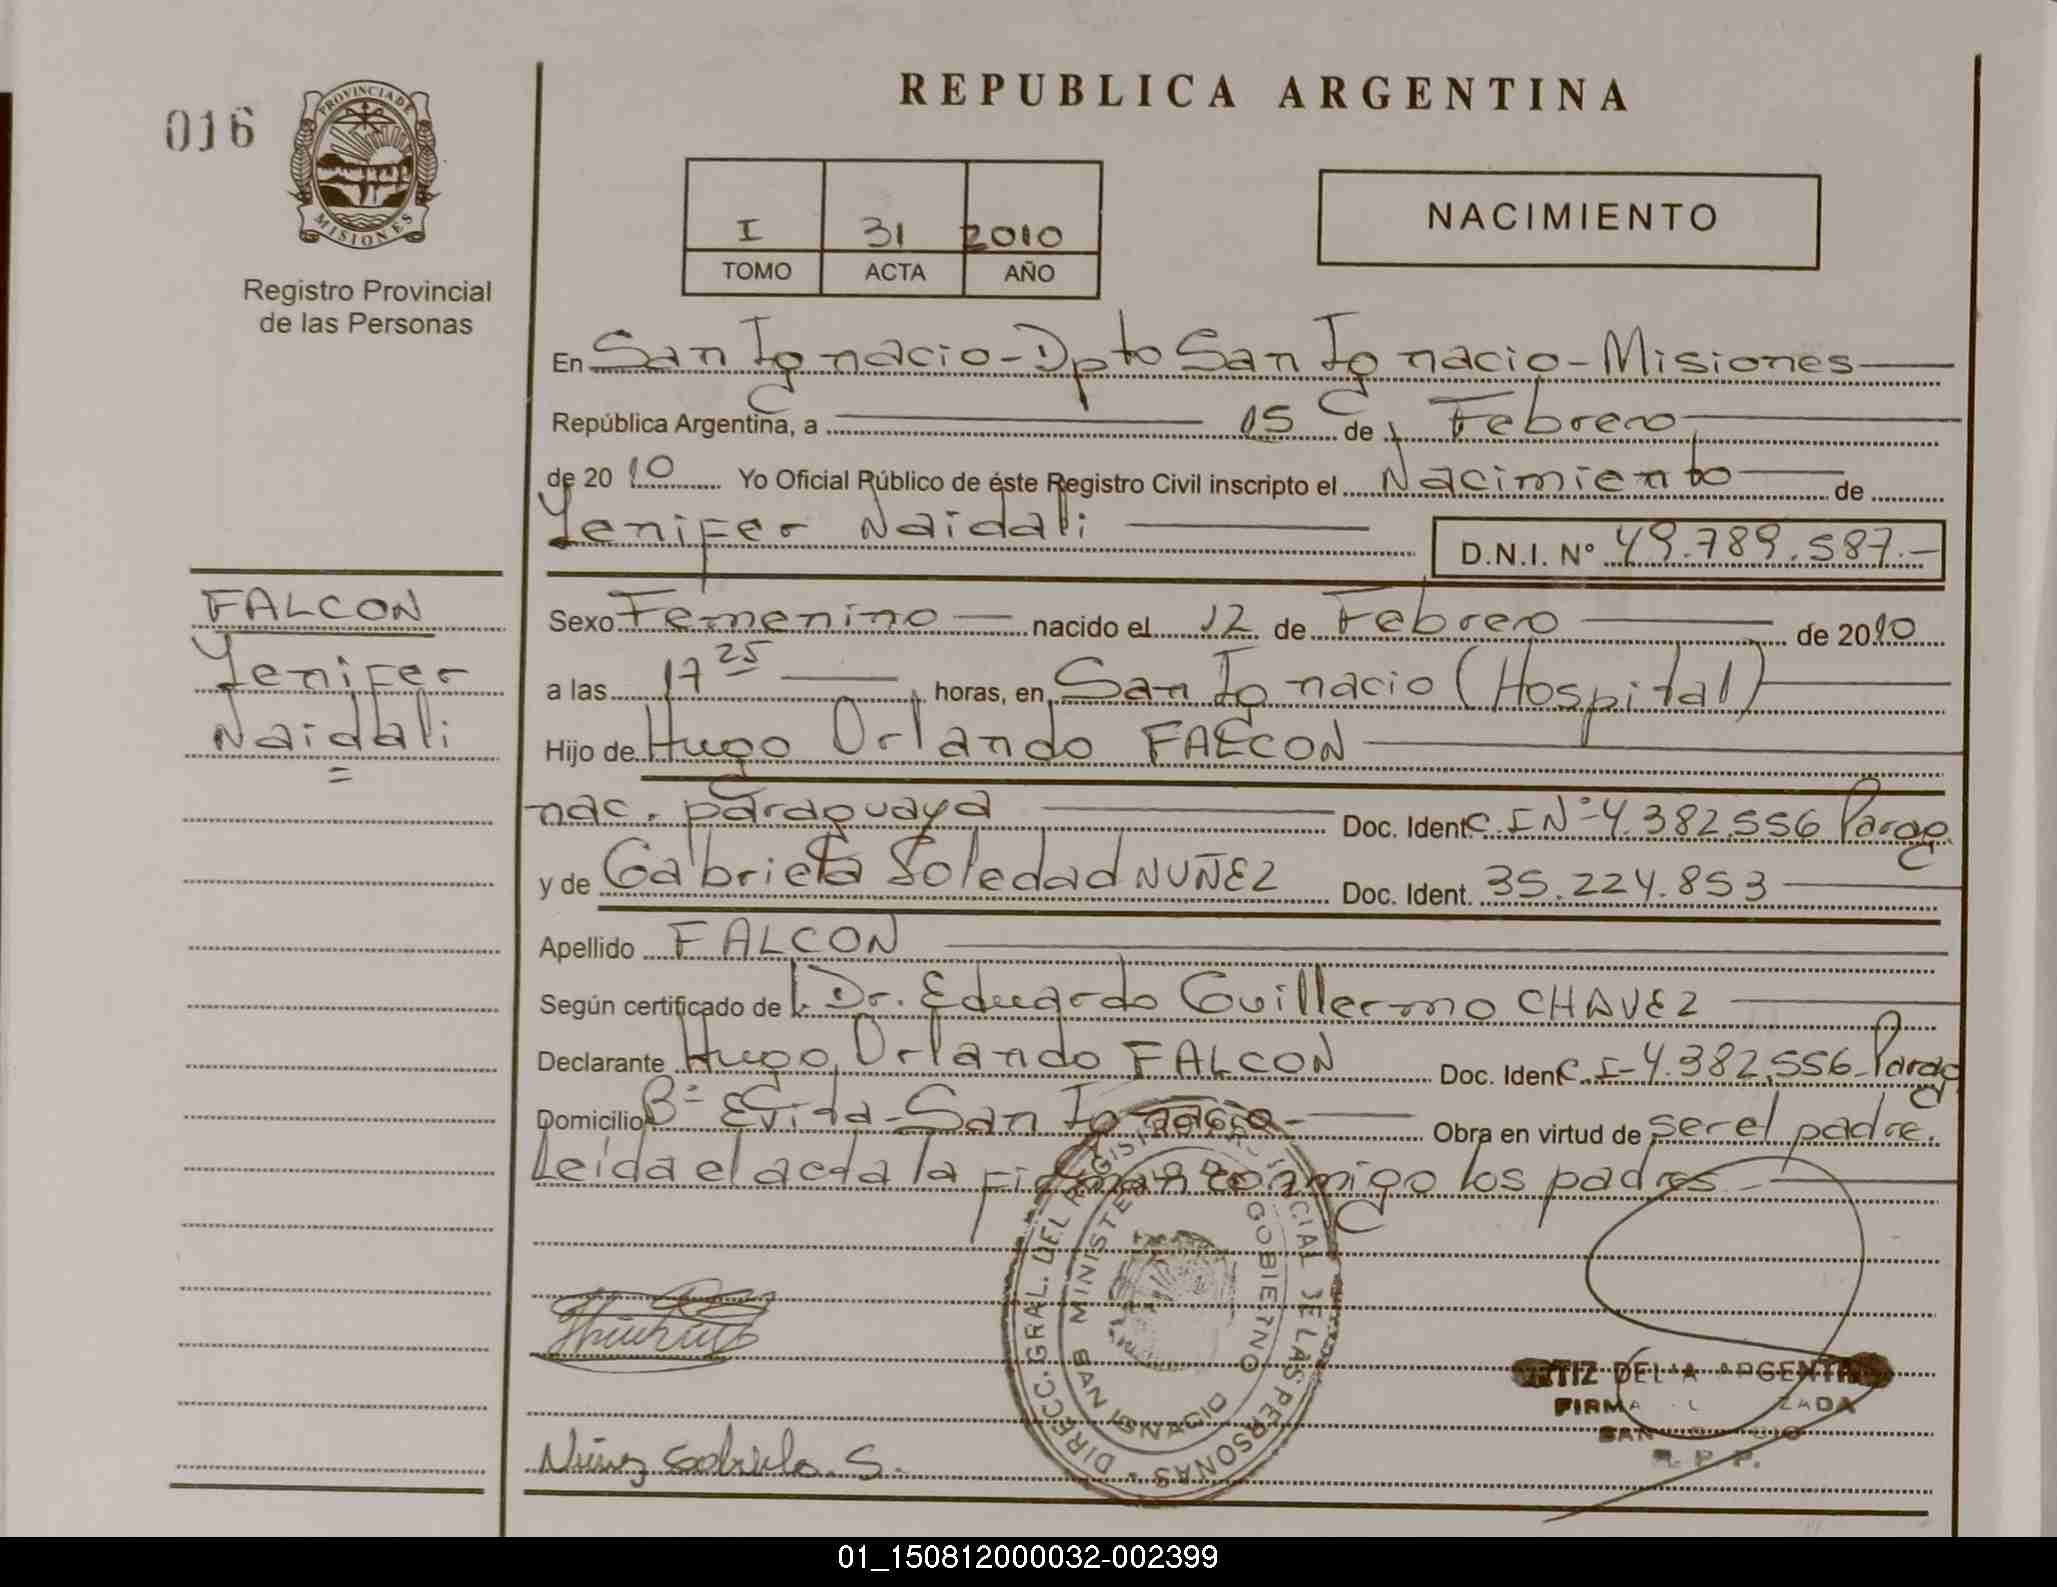 016
PROVINCIA DE
MISIONES
Registro Provincial
de las Personas
REPUBLICA ARGENTINA
I 31 2010
TOMO ACTA AÑO
NACIMIENTO
En San Ignacio - Dpto San Ignacio - Misiones
República Argentina, a 15 de Febrero
de 20 10 Yo Oficial Público de éste Registro Civil inscripto el Nacimiento de
Yenifer Naidali D.N.I. N° 49.789.587.-
FALCON
Yenifer
Naidali
Sexo Femenino nacido el 12 de Febrero de 2010
a las 17 25 horas, en San Ignacio (Hospital)
Hijo de Hugo Orlando FALCON
nac. paraguaya Doc. Ident. C.I Nº 4.382.556 Parag
y de Gabriela Soledad NUÑEZ Doc. Ident. 35.224.853
Apellido FALCON
Según certificado de Dr. Eduardo Guillermo CHAVEZ
Declarante Hugo Orlando FALCON Doc. Iden C.I - 4.382.556 Parag
Domicilio Bº Evita - San Ignacio - Obra en virtud de ser el padre.
Leída el acta la firman conmigo los padres
DIRECC. GRAL. DEL REGISTRO PROVINCIAL DE LAS PERSONAS
MINISTERIO DE GOBIERNO
SAN IGNACIO
DEL ARGENTINA
FIRMA
SAN
R. P. P.
Nuñez Gabriela. S.
01_150812000032-002399